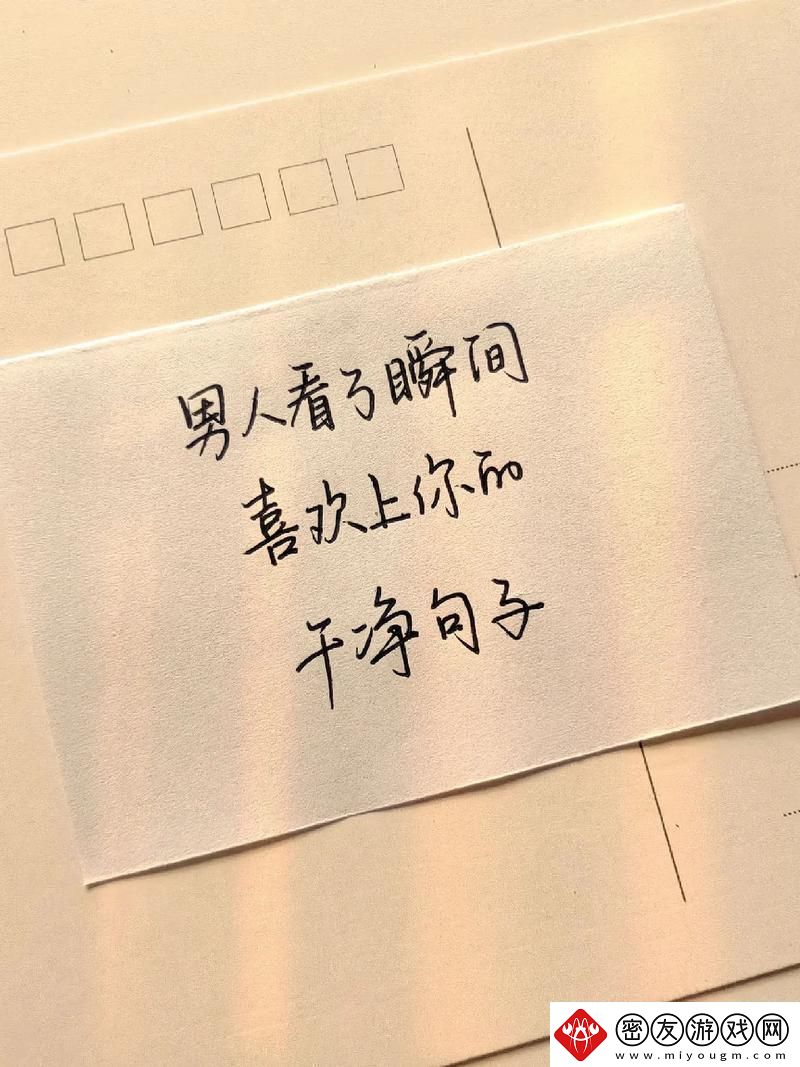 男人看了瞬间
喜欢上你的
干净句子
密友游戏网
www.miyougm.com